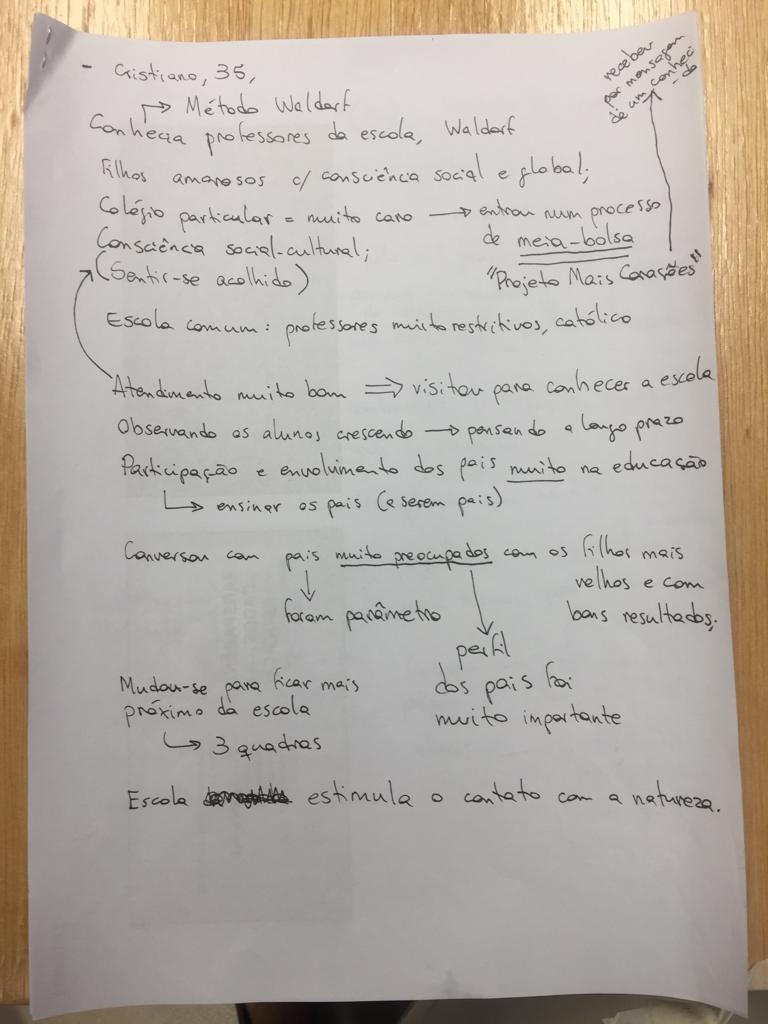 - Cristiano, 35,
recebeu
por mensagem
de um conheci
-do
↳ Método Waldorf
Conhecia professores da escola, Waldorf
Filhos amorosos c/ consciência social e global;
Colégio particular = muito caro → entrou num processo
de meia-bolsa
Consciência social-cultural;
(Sentir-se acolhido)
"Projeto Mais Corações"
Escola comum: professores muito restritivos, católico
Atendimento muito bom ⇒ visitou para conhecer a escola
Observando os alunos crescendo → pensando a longo prazo
Participação e envolvimento dos pais muito na educação
↳ ensinar os pais (a serem pais)
Conversou com pais muito preocupados com os filhos mais
velhos e com
bons resultados.
↓ foram parâmetro
↓ perfil
dos pais foi
muito importante
Mudou-se para ficar mais
próximo da escola
↳ 3 quadras
Escola estimula o contato com a natureza.